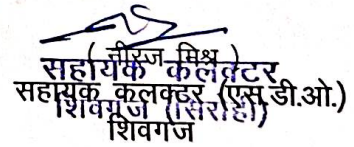 ( नीरज मिश्र )
सहायक कलेक्टर
सहायक कलक्टर (एस.डी.ओ.)
शिवगंज (सिरोही)
शिवगंज